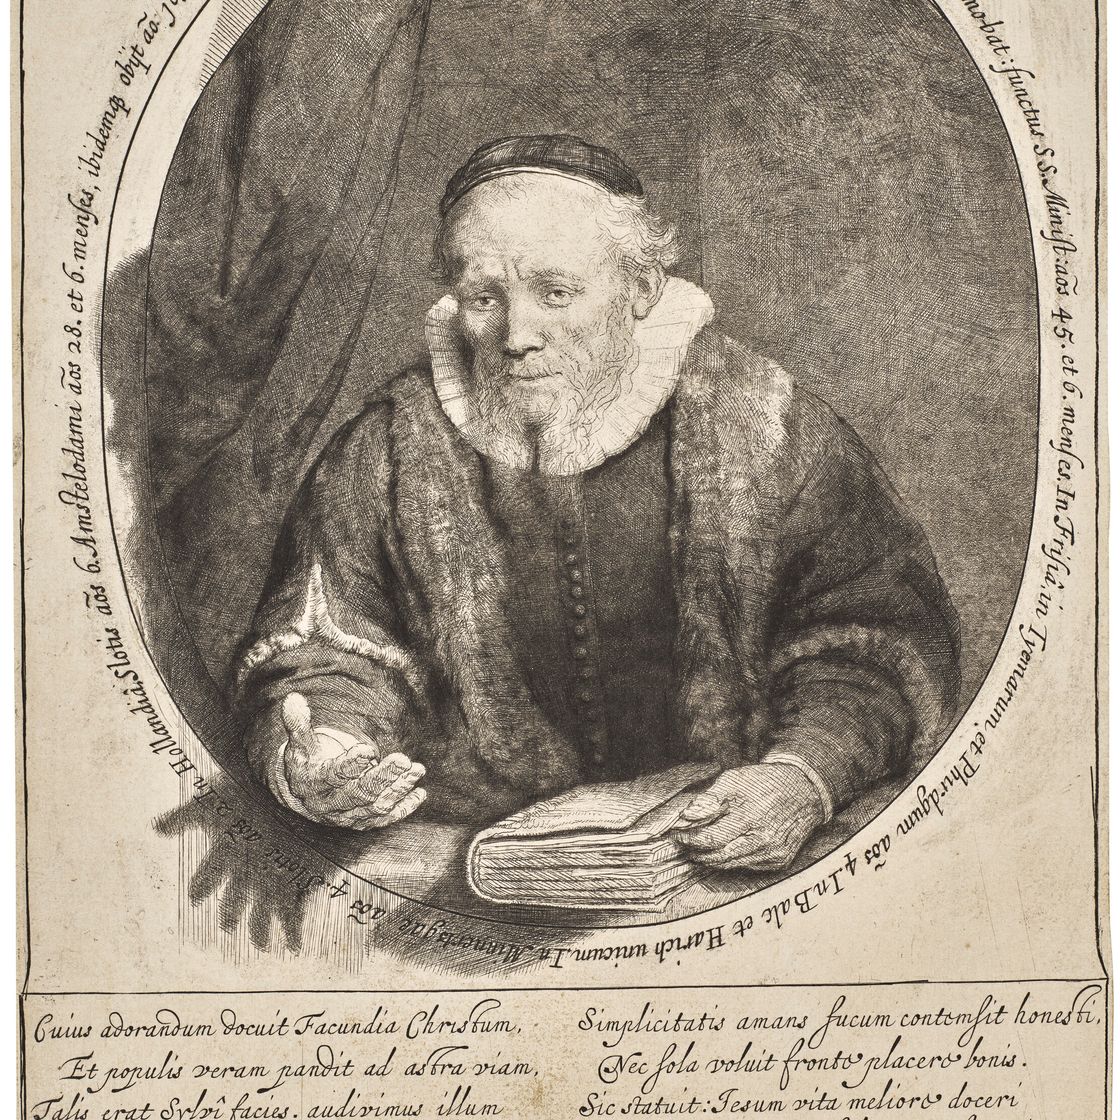 mo.bat: functus S.S. Minist: aos 45. et 6. menses. In Frisiâ, in Tyemarum, et Phirdgum aos 4. In Balc et Harich unicum. In Minnertsgae aos 4. Slotis aos 2. In Hollandiâ, Slotis aos 6. Amstelodami aos 28. et 6. menses, ibidemq obijt ao.
Cuius adorandum docuit Facundia Christum,
Et populis veram pandit ad astra viam,
Talis erat Sylvî facies. audivimus illum
Simplicitatis amans fucum contemsit honesti,
Nec sola voluit fronte placere bonis.
Sic statuit: Jesum vita meliore doceri